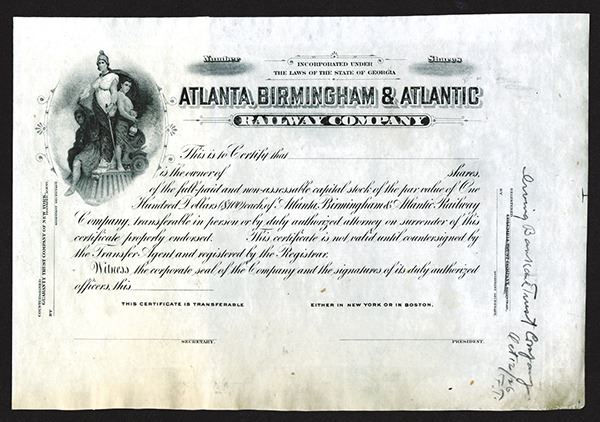 Number
Shares
INCORPORATED UNDER
THE LAWS OF THE STATE OF GEORGIA
ATLANTA, BIRMINGHAM & ATLANTIC
RAILWAY COMPANY
This is to Certify that
is the owner of shares,
of the full-paid and non-assessable capital stock of the par value of One
Hundred Dollars ($100) each, of Atlanta, Birmingham & Atlantic Railway
Company, transferable in person or by duly authorized attorney on surrender of this
certificate properly endorsed. This certificate is not valid until countersigned by
the Transfer Agent and registered by the Registrar.
Witness, the corporate seal of the Company and the signatures of its duly authorized
officers, this
THIS CERTIFICATE IS TRANSFERABLE EITHER IN NEW YORK OR IN BOSTON.
SECRETARY.
PRESIDENT.
COUNTERSIGNED:
GUARANTY TRUST COMPANY OF NEW YORK,
BY
REGISTERED:
BY
Irving Bank & Trust Company
Oct 12/26